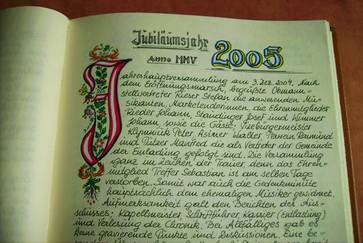 Jubiläumsjahr
Anno MMV 2005
Jahreshauptversammlung am 3. Dez. 2004. Nach
dem Eröffnungsmarsch, begrüßte Obmann-
stellvertreter Rieser Stefan die anwesenden Mu-
sikanten, Marketenderinnen, die Ehrenmitglieder
Rieder Johann, Staudinger Josef und Wimmer
Johann, sowie die Gäste; Vizebürgermeister
Peter, Walter,
und Manfred die als Vertreter der Gemeinde
der Einladung gefolgt sind. Die Versammlung
ganz im Zeichen der Trauer, denn das Ehren-
mitglied Treffer Sebastian ist am selben Tage
verstorben. Somit war auch die Gedenkminute
hauptsächlich dem ehemaligen Musiker gewidmet.
Aufmerksamkeit galt den Berichten des Aus-
schusses: Kapellmeister, Schriftführer, Kassier (Entlastung)
und Verlesung der Chronik. Bei Allfälliges gab es
keine gravierende Punkte und Diskussionen. Eine be